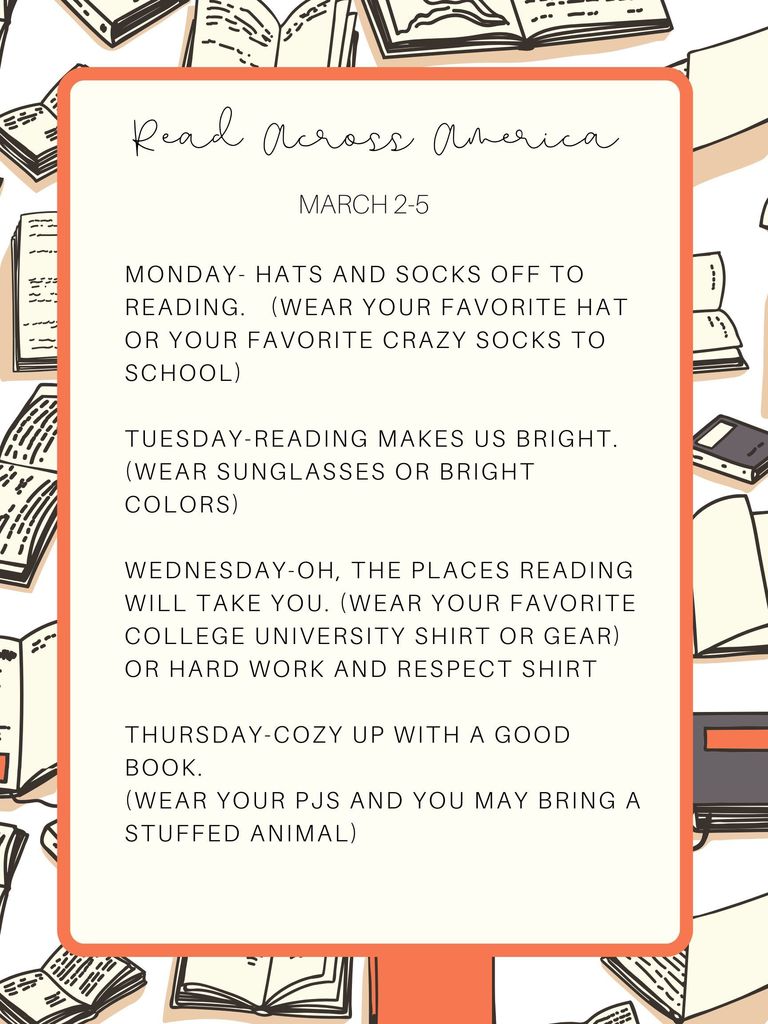 Read Across America
MARCH 2-5
MONDAY- HATS AND SOCKS OFF TO
READING. (WEAR YOUR FAVORITE HAT
OR YOUR FAVORITE CRAZY SOCKS TO
SCHOOL)
TUESDAY-READING MAKES US BRIGHT.
(WEAR SUNGLASSES OR BRIGHT
COLORS)
WEDNESDAY-OH, THE PLACES READING
WILL TAKE YOU. (WEAR YOUR FAVORITE
COLLEGE UNIVERSITY SHIRT OR GEAR)
OR HARD WORK AND RESPECT SHIRT
THURSDAY-COZY UP WITH A GOOD
BOOK.
(WEAR YOUR PJS AND YOU MAY BRING A
STUFFED ANIMAL)